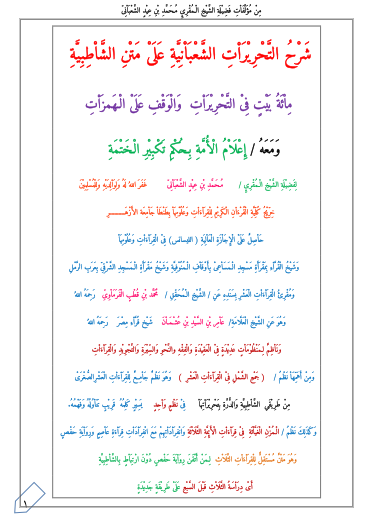 مِنْ مُؤَلَّفَاتِ فَضِيلَةِ الشَّيْخِ الْـمُقْرِئِ مُحَمَّدِ بْنِ عِيْدٍ الشَّعْبَانِيِّ
شَرْحُ التَّحْرِيْرَاتِ الشَّعْبَانِيَّةِ عَلَىْ مَتْنِ الشَّاْطِبِيَّةِ
مِاْئَةُ بَيْتٍ فِىْ التَّحْرِيْرَاْتِ وَالْوَقْفِ عَلَىْ الْـهَمْزَاْتِ
وَمَعَهُ / إِعْلَاْمُ الْأُمَّةِ بِـحُكْمِ تَكْبِيْرِ الْـخَتْمَةِ
لِفَضِيْلَةِ الشَّيْخِ الْـمُقْرِئِ / مُـحَمَّدِ بْنِ عِيْدٍ الشَّعْبَاْنِيِّ غَفَرَ اللهُ لَهُ وَلِوَاْلِدَيْهِ وَلِلْمُسْلِمِيْنَ
خِرِّيْجُ كُلِّيَّةِ الْقُرْءَاْنِ الْكَرِيْمِ لِلْقِرَاْءَاْتِ وَعُلُوْمِهَاْ بِطَنْطَاْ جَاْمِعَةِ الْأَزْهَـــــرِ
حَاْصِلٌ عَلَىْ الْإِجَاْزَةِ الْعَاْلِيَةِ ( الليسانس ) فِىْ الْقِرَاْءَاْتِ وَعُلُوْمِهَاْ
وَشَيْخُ الْقُرَّاْءِ بِمَقْرَأَةِ مَسْجِدِ الْـمَسَاْعِىْ بِأَوْقَاْفِ الْـمَنُوْفِيَّةِ وَشَيْخُ مَقْرَأَةِ الْـمَسْجِدِ الشَّرْقِىِّ بِعَرَبِ الرَّمْلِ
وَمُقْرِئُ الْقِرَاْءَاْتِ الْعَشْرِ بِسَنَدِهِ عَنِ / الشَّيْخِ الْـمُحَقِّقِ / مُحَمَّدِ بْنِ قُطْبٍ الْقَرْمَلَاْوِيِّ رَحِمَهُ اللهُ
وَهُوَ عَنِ الشَّيْخِ الْعَلَّاْمَةِ/ عَاْمِرِ بْنِ السَّيِّدِ بْنِ عُثْـمَـاْنَ شَيْخِ قُرَّاْءِ مِصْرَ رَحِمَهُ اللهُ
وَنَاْظِمٌ لِـمَنْظُوْمَاْتٍ عَدِيْدَةٍ فِىْ الْعَقِيْدَةِ وَالْفِقْهِ وَالنَّحْوِ وَالسِّيْرَةِ وَالتَّجْوِيْدِ وَالْقِرَاْءَاْتِ
وَمِنْ أَهَمِّهَاْ نَظْمُ / ( جَمْعِ الشَّمْلِ فِىْ الْقِرَاْءَاْتِ الْعَشْرِ ) وَهُوَ نَظْمٌ جَاْمِعٌ لِلْقِرَاْءَاْتِ الْعَشْرِ الصُّغْرَىْ
مِنْ طَرِيْقَىِ الشَّاْطِبِيَّةِ وَالدُّرَّةِ بِتَحْرِيْرَاْتِهِـمَاْ فِىْ نَظْمٍ وَاْحِدٍ يَسِيْرٍ كَلِمُهُ قَرِيْبٍ تَنَاْوُلُهُ وَفَهْمُهُ.
وَكَذَلِكَ نَظْمُ / الْمُزْنِ الْمُغَدِّقَةِ فِىْ قِرَاْءَاْتِ الْأَئِمَّةِ الثَّلَاْثَةِ وَانْفِرَاْدَاْتِهِمْ مَعَ انْفِرَاْدَاْتِ قِرَاْءَةِ عَاْصِمٍ وَرِوَاْيَةِ حَفْصٍ
وَهُوَ مَتْنٌ مُسْتَقِلٌّ لِلْقِرَاْءَاْتِ الثَّلَاْثِ لِـمَنْ أَتْقَنَ رِوَاْيَةَ حَفْصٍ دُوْنَ ارْتِبَاْطٍ بِالشَّاْطِبِيَّةِ
أَىْ دِرَاْسَةُ الثَّلَاْثِ قَبْلَ السَّبْعِ عَلَىْ طَرِيْقَةٍ جَدِيْدَةٍ
١